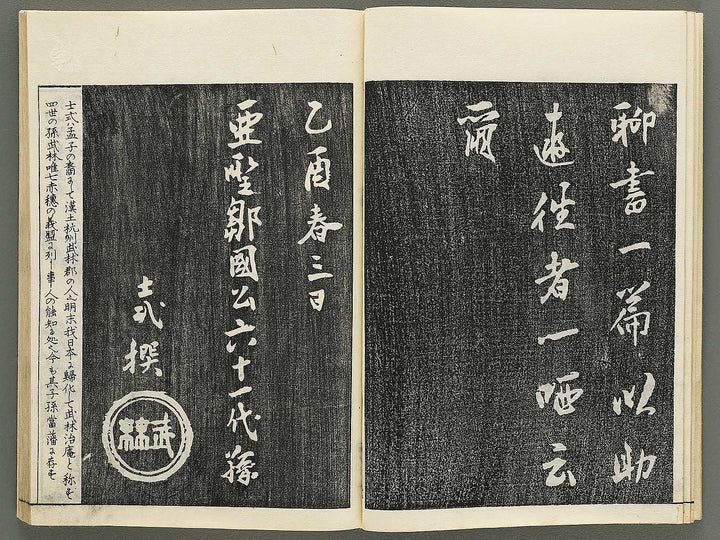 聊書一篇以助
遊徃者一哂云
爾
乙酉春三日
亜聖鄒國公六十一代孫
士式撰
武林
士式ハ孟子の裔にして漢土杭州武林郡の人也明末我日本に歸化して武林治庵と称す
四世の孫武林唯七赤穂の義盟に列し事人の能知る処也今も其子孫當藩に存す